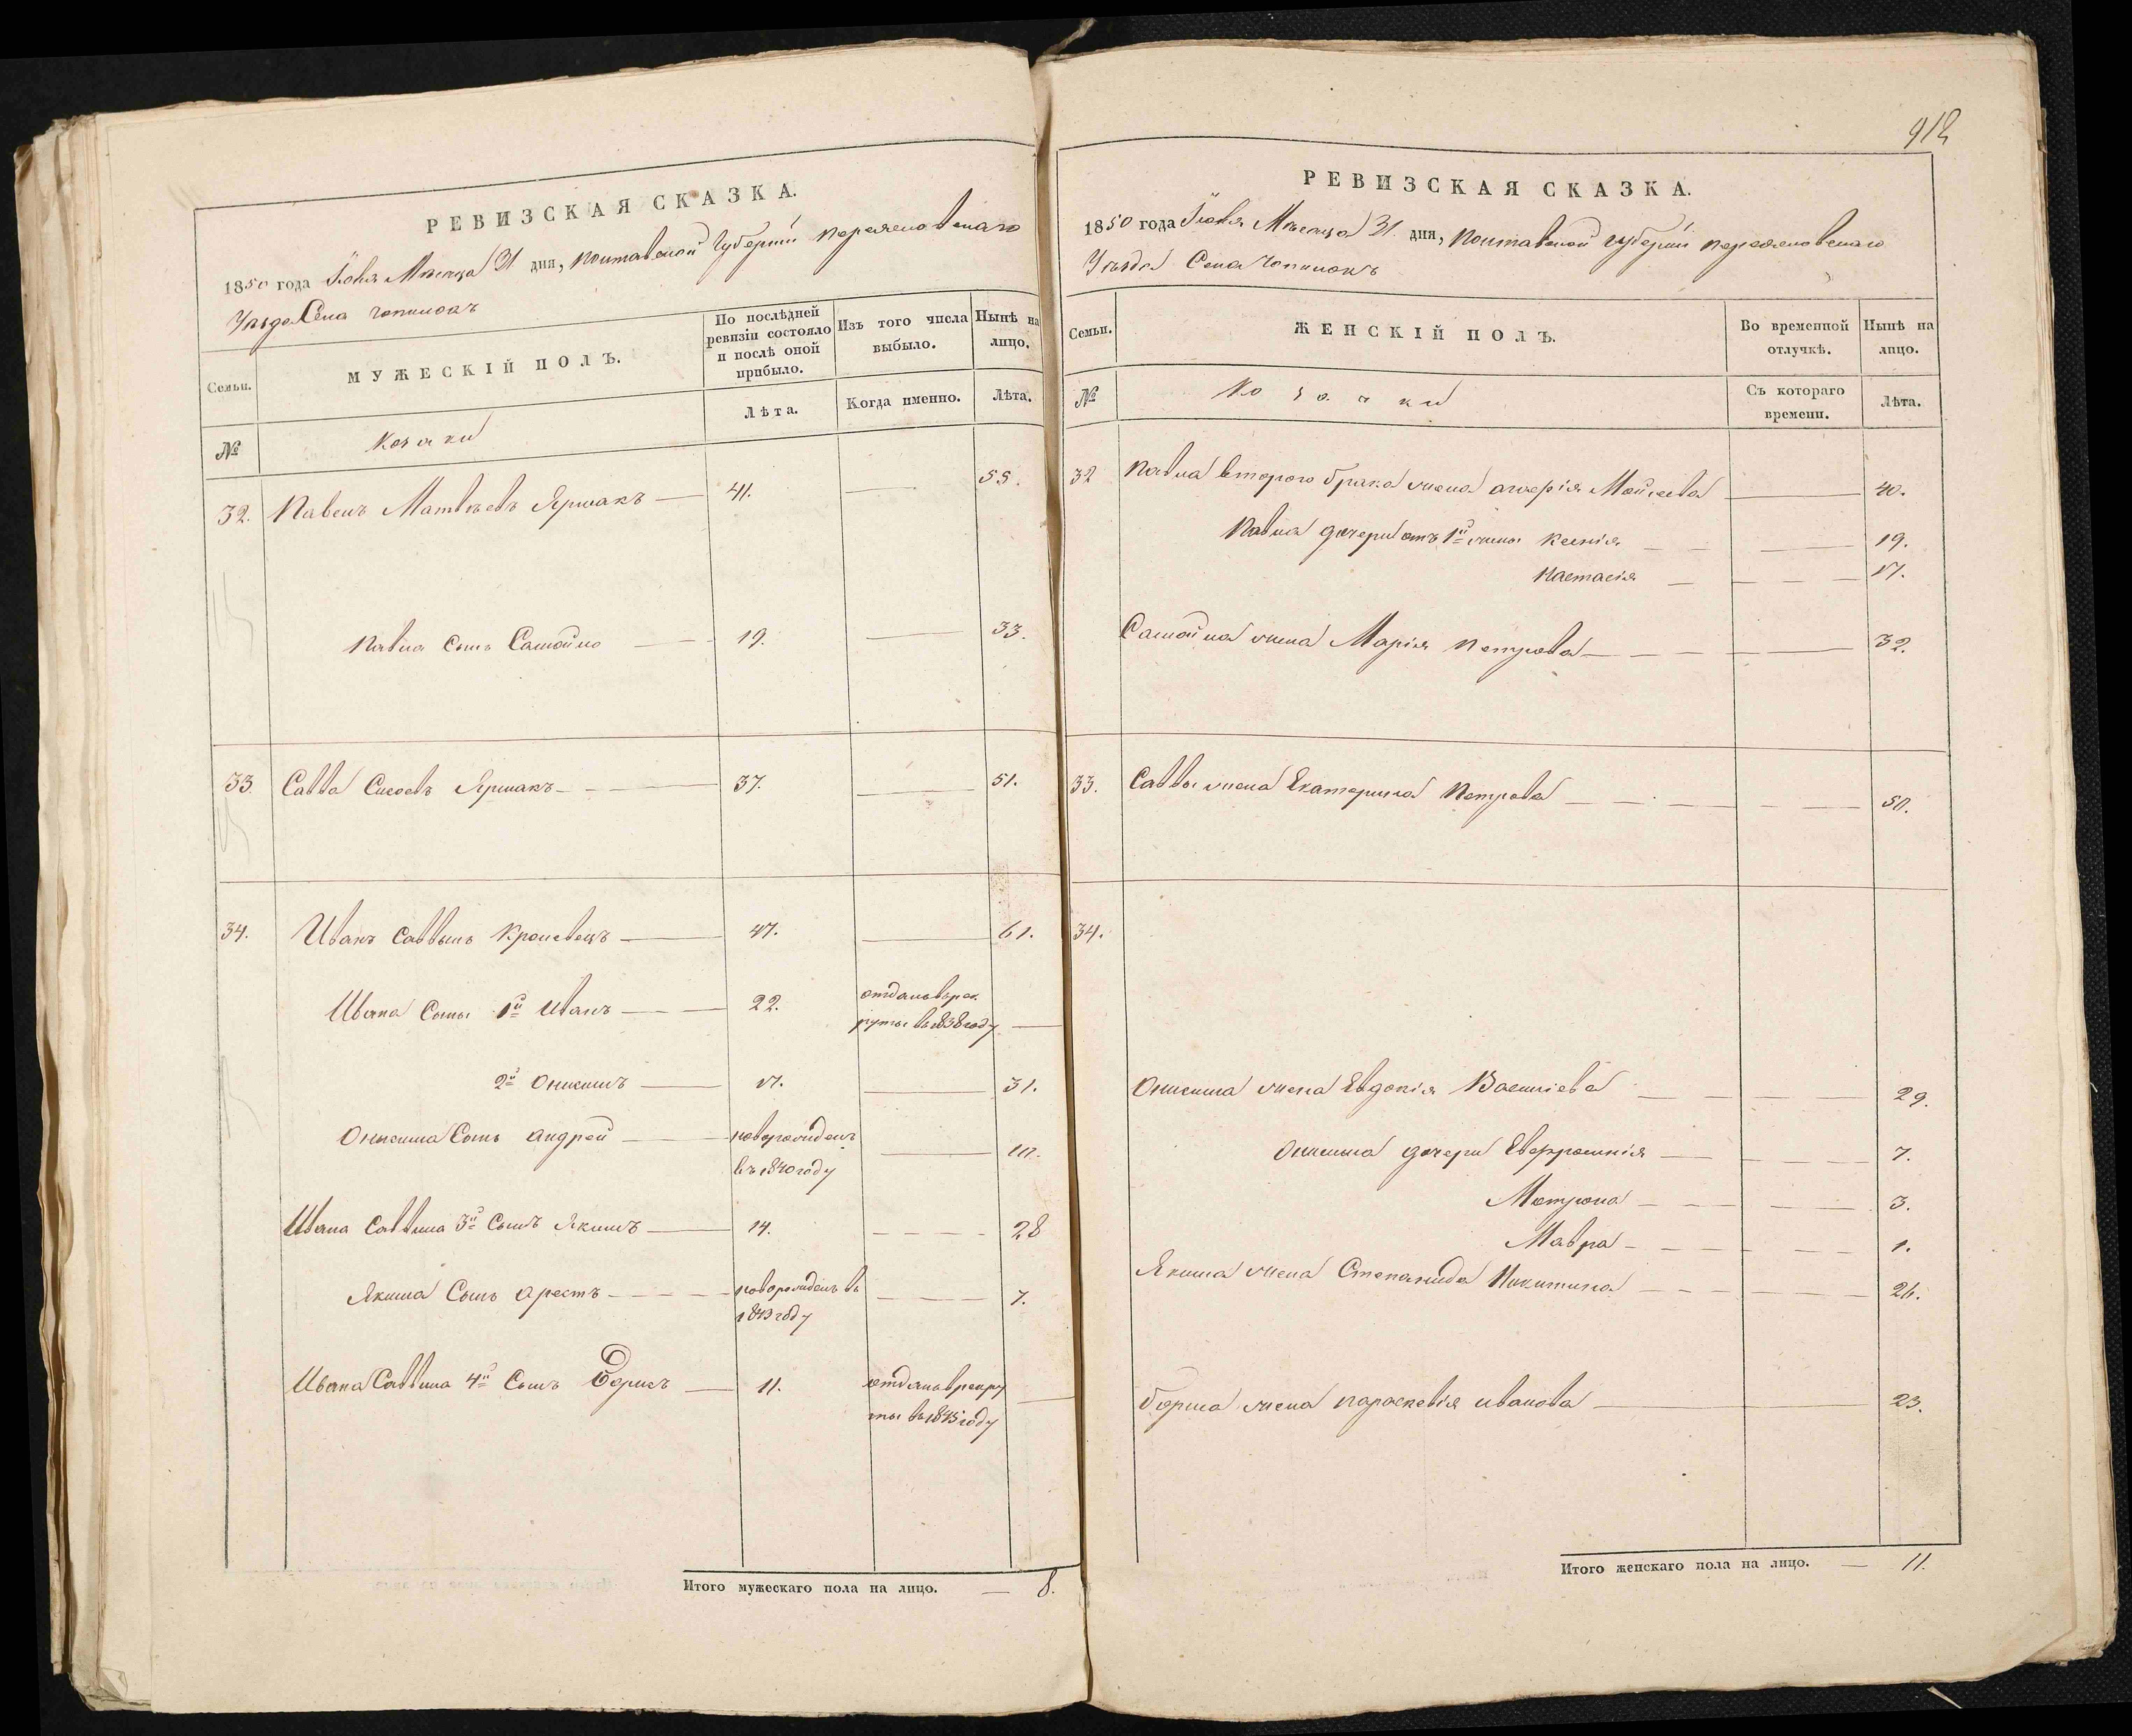 РЕВИЗСКАЯ СКАЗКА.
1850 года Іюня Мѣсяца 31 дня, Полтавской Губерніи Переяславскаго
Уѣзда Села
Семьи.
МУЖЕСКІЙ ПОЛЪ.
По послѣдней ревизіи состояло и послѣ оной прибыло.
Изъ того числа выбыло.
Нынѣ на лицо.
№
Козаки
Лѣта.
Когда именно.
Лѣта.
32. Павелъ Матвѣевъ Ярмакъ — 41. — 55.
Павла Сынъ Самойло — 19. — 33.
33. Савва Сисоевъ Ярмакъ — 37. — 51.
34. Иванъ Саввинъ — 47. — 61.
Ивана Сыны 1й Иванъ — 22. отданъ въ рек
руты въ 1838 году —
2й Онисимъ — 17. — 31.
Онисима Сынъ Андрей — новорожденъ
въ 1840 году — 10.
Ивана Саввина 3й Сынъ Якимъ — 14. — 28
Якима Сынъ Арестъ — новорожденъ въ
1843 году — 7.
Ивана Саввина 4й Сынъ Борисъ — 11. отданъ врекру
ты въ 1845 году —
Итого мужескаго пола на лицо. — 8.
912
РЕВИЗСКАЯ СКАЗКА.
1850 года Іюня Мѣсяца 31 дня, Полтавской губерніи Переяславскаго
Уѣзда Села
Семьи.
ЖЕНСКІЙ ПОЛЪ.
Во временной отлучкѣ.
Нынѣ на лицо.
№
Козачки
Съ котораго времени.
Лѣта.
32 Павла втораго брака жена Моисеева — 40.
Павла дочери отъ 1й жены Ксенія — 19.
Настасія — 17.
Самойла жена Марія Петрова — 32.
33. Саввы жена Екатерина Петрова — 50.
34.
Онисима жена Евдокія Василіева — 29.
Онисима дочери Евфросинія — 7.
Мотрона — 3.
Мавра — 1.
Якима жена Степанида Никитина — 26.
Бориса жена Параскевія Иванова — 23.
Итого женскаго пола на лицо. — 11.